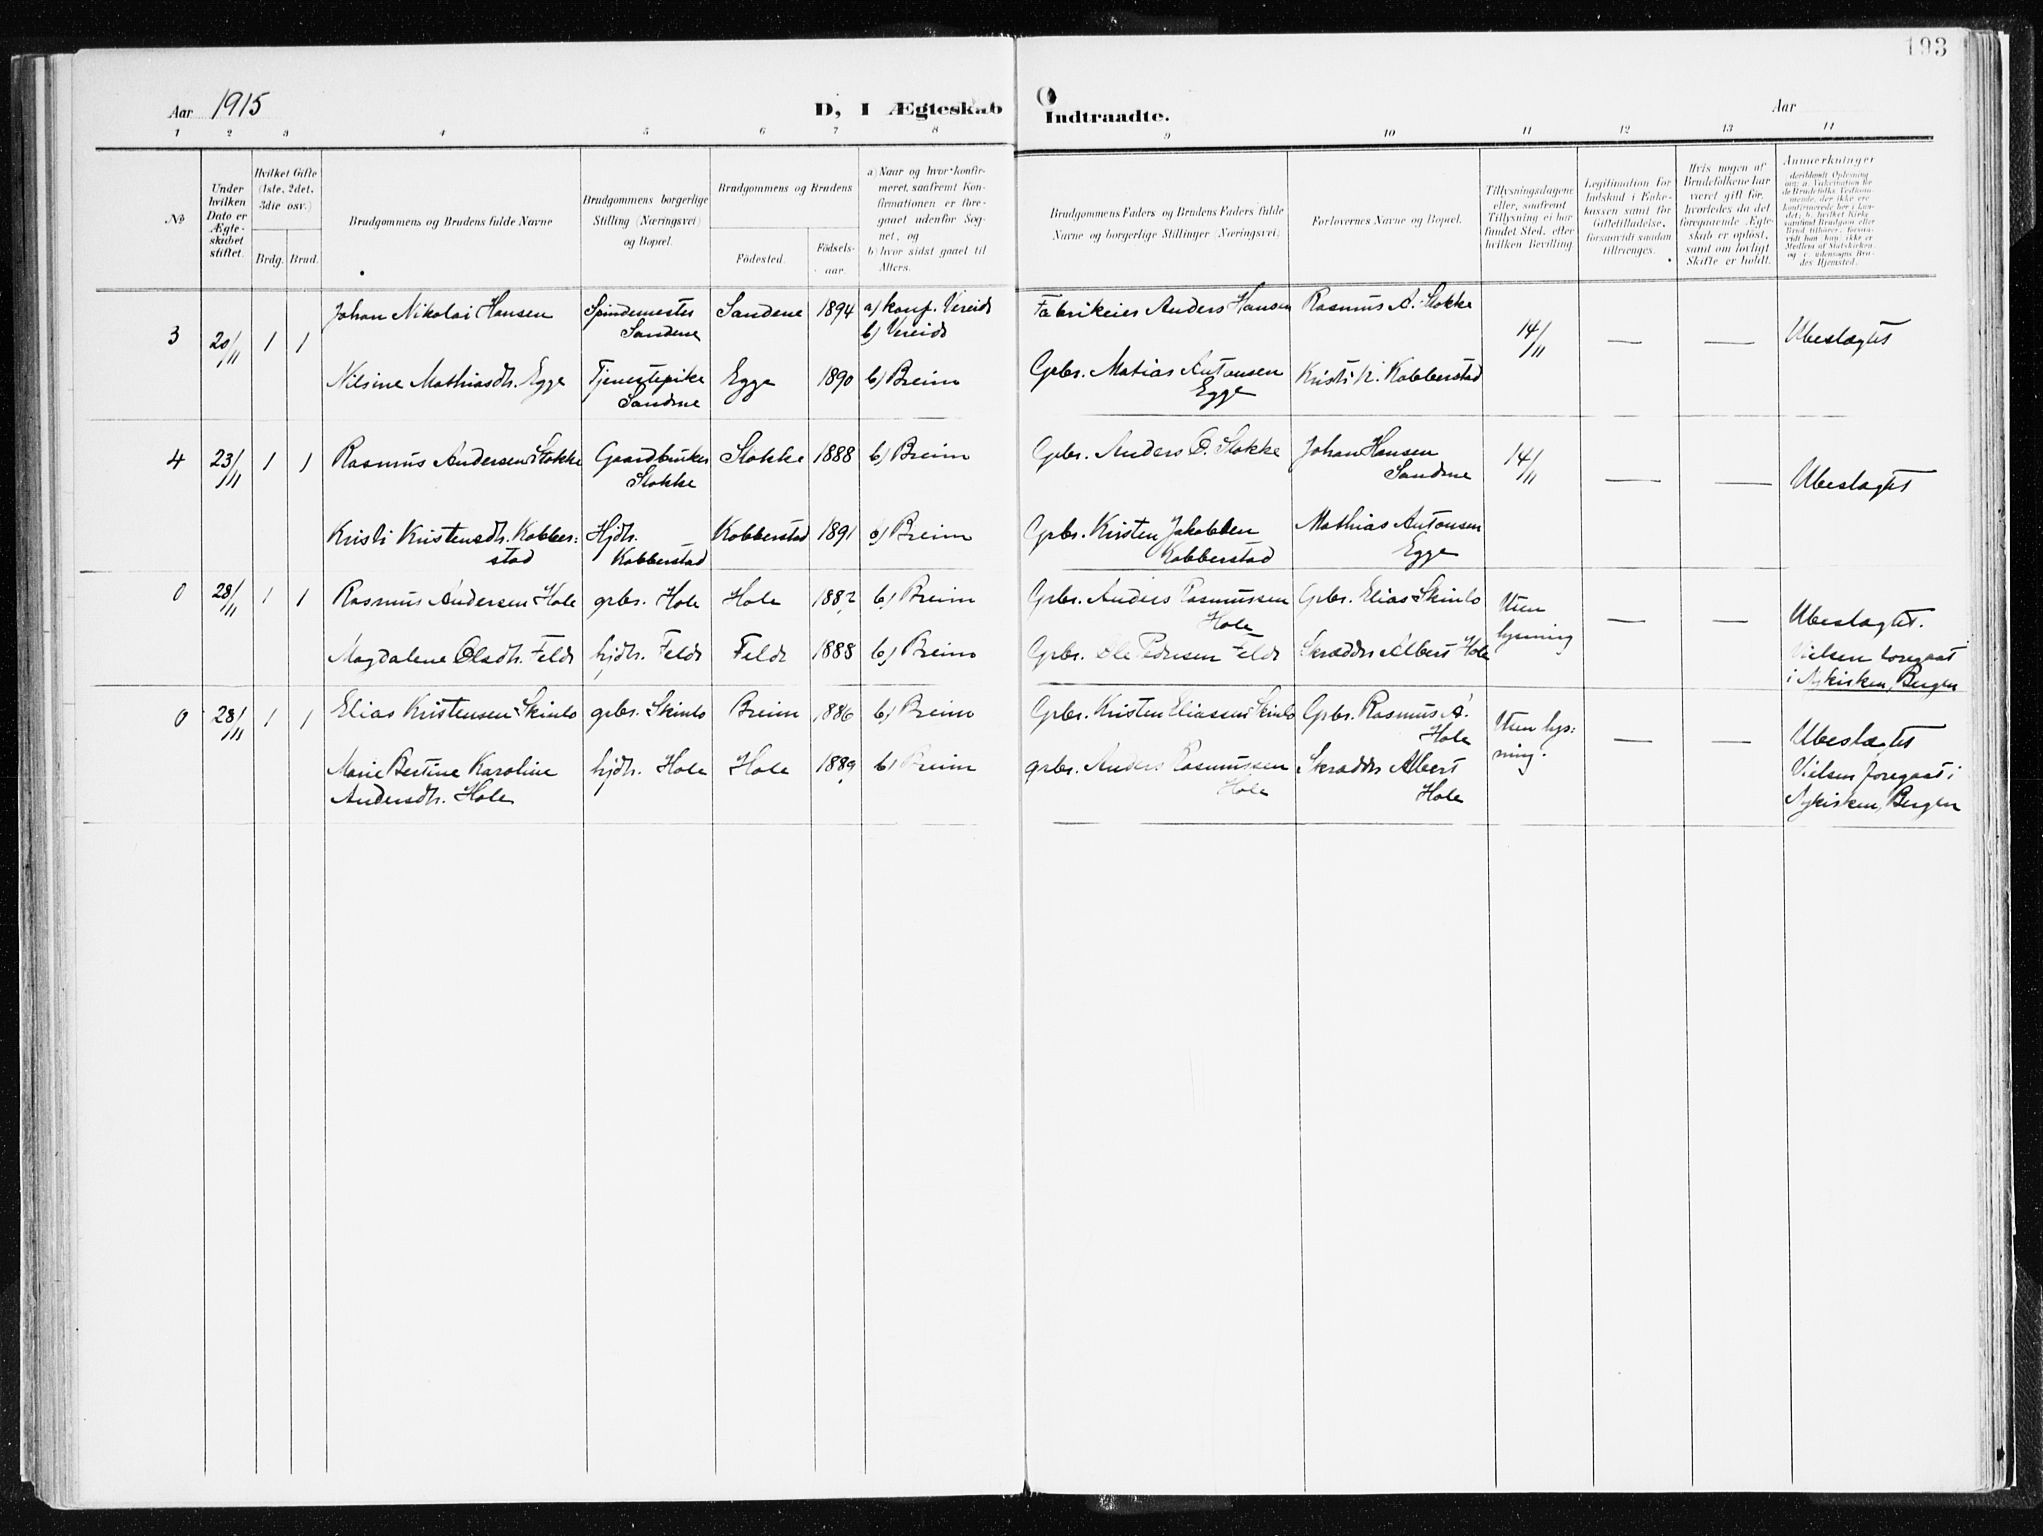 193
Aar 1915
D, I Ægteskab
Indtraadte.
Aar
1 2 3 4 5 6 7 8 9 10 11 12 13 14
No
Under hvilken Dato er Ægteskabet stiftet.
Hvilket Gifte (1ste, 2det, 3die osv.)
Brdg. Brud.
Brudgommens og Brudens fulde Navne
Brudgommens borgerlige Stilling (Næringsvei) og Bopæl.
Brudgommens og Brudens
Födested.
Födsels-aar.
a) Naar og hvor konfirmeret, saafremt Konfirmationen er foregaaet udenfor Sognet, og
b) hvor sidst gaaet til Alters.
Brudgommens Faders og Brudens Faders fulde Navne og borgerlige Stillinger (Næringsvei)
Forlovernes Navne og Bopæl.
Tillysningsdagene eller, saafremt Tillysning ei har fundet Sted, efter hvilken Bevilling.
Legitimation for Indskud i Enkekassen samt for Giftetilladelse, forsaavidt saadan tiltrænges.
Hvis nogen af Brudefolkene har været gift för, hvorledes da det foregaaende Ægteskab er oplöst, samt om lovligt Skifte er holdt.
Anmerkninger
3 20/11 1 1 Johan Nikolai Hansen Spindemester Sandene Sandene 1894 a) konf. Vereide b) Vereide Fabrikeier Anders Hansen Rasmus A. Slokke 14/11 — — Ubeslægtet
Nilsine Mathiasdtr. Egge Tjenestepike Sandene Egge 1890 b) Breim Grbr. Matias Antonsen Egge Kristi K. Kobberstad
4 23/11 1 1 Rasmus Andersen Slokke Gaardbruker Slokke Slokke 1888 b) Breim Grbr. Anders O. Slokke Johan Hansen Sandene 14/11 — — Ubeslægtet
Kristi Kristensdtr. Kobberstad Hjdtr. Kobberstad Kobberstad 1891 b) Breim Grbr. Kristen Jakobsen Kobberstad Mathias Antonsen Egge
0 28/11 1 1 Rasmus Andersen Hole grbr. Hole Hole 1882 b) Breim Grbr. Anders Rasmussen Hole Grbr. Elias Skinlo Uten lysning — — Ubeslægtet.
Magdalene Olsdtr. Felde hjdtr. Felde Felde 1888 b) Breim Grbr. Ole Pedersen Felde Skrædder Albert Hole Vielsen foregaat i Nykirken, Bergen
0 28/11 1 1 Elias Kristensen Skinlo grbr. Skinlo Breim 1886 b) Breim Grbr. Kristen Eliassen Skinlo Grbr. Rasmus A. Hole Uten lysning. — — Ubeslægtet
Marie Bertine Karoline Andersdtr. Hole hjdtr. Hole Hole 1889 b) Breim grbr. Anders Rasmussen Hole Skrædder Albert Hole Vielsen foregaat i Nykirken, Bergen